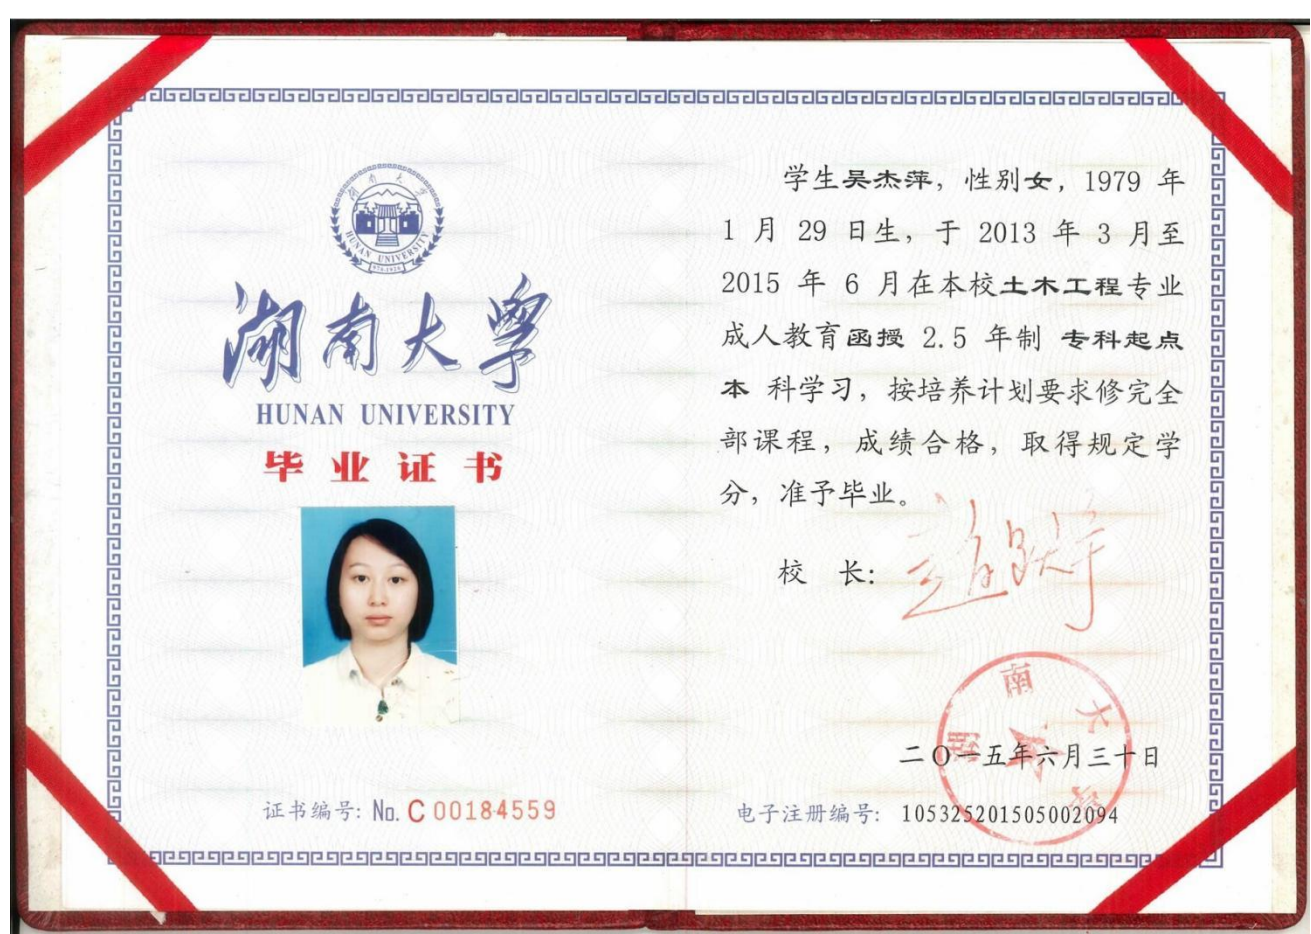 湖南大学
HUNAN UNIVERSITY
湖南大学
HUNAN UNIVERSITY
毕业证书
证书编号: No. C 00184559
学生吴杰萍，性别女，1979 年
1 月 29 日生，于 2013 年 3 月至
2015 年 6 月在本校土木工程专业
成人教育函授 2.5 年制 专科起点
本 科学习，按培养计划要求修完全
部课程，成绩合格，取得规定学
分，准予毕业。
校 长:
湖南大学
二〇一五年六月三十日
电子注册编号: 105325201505002094